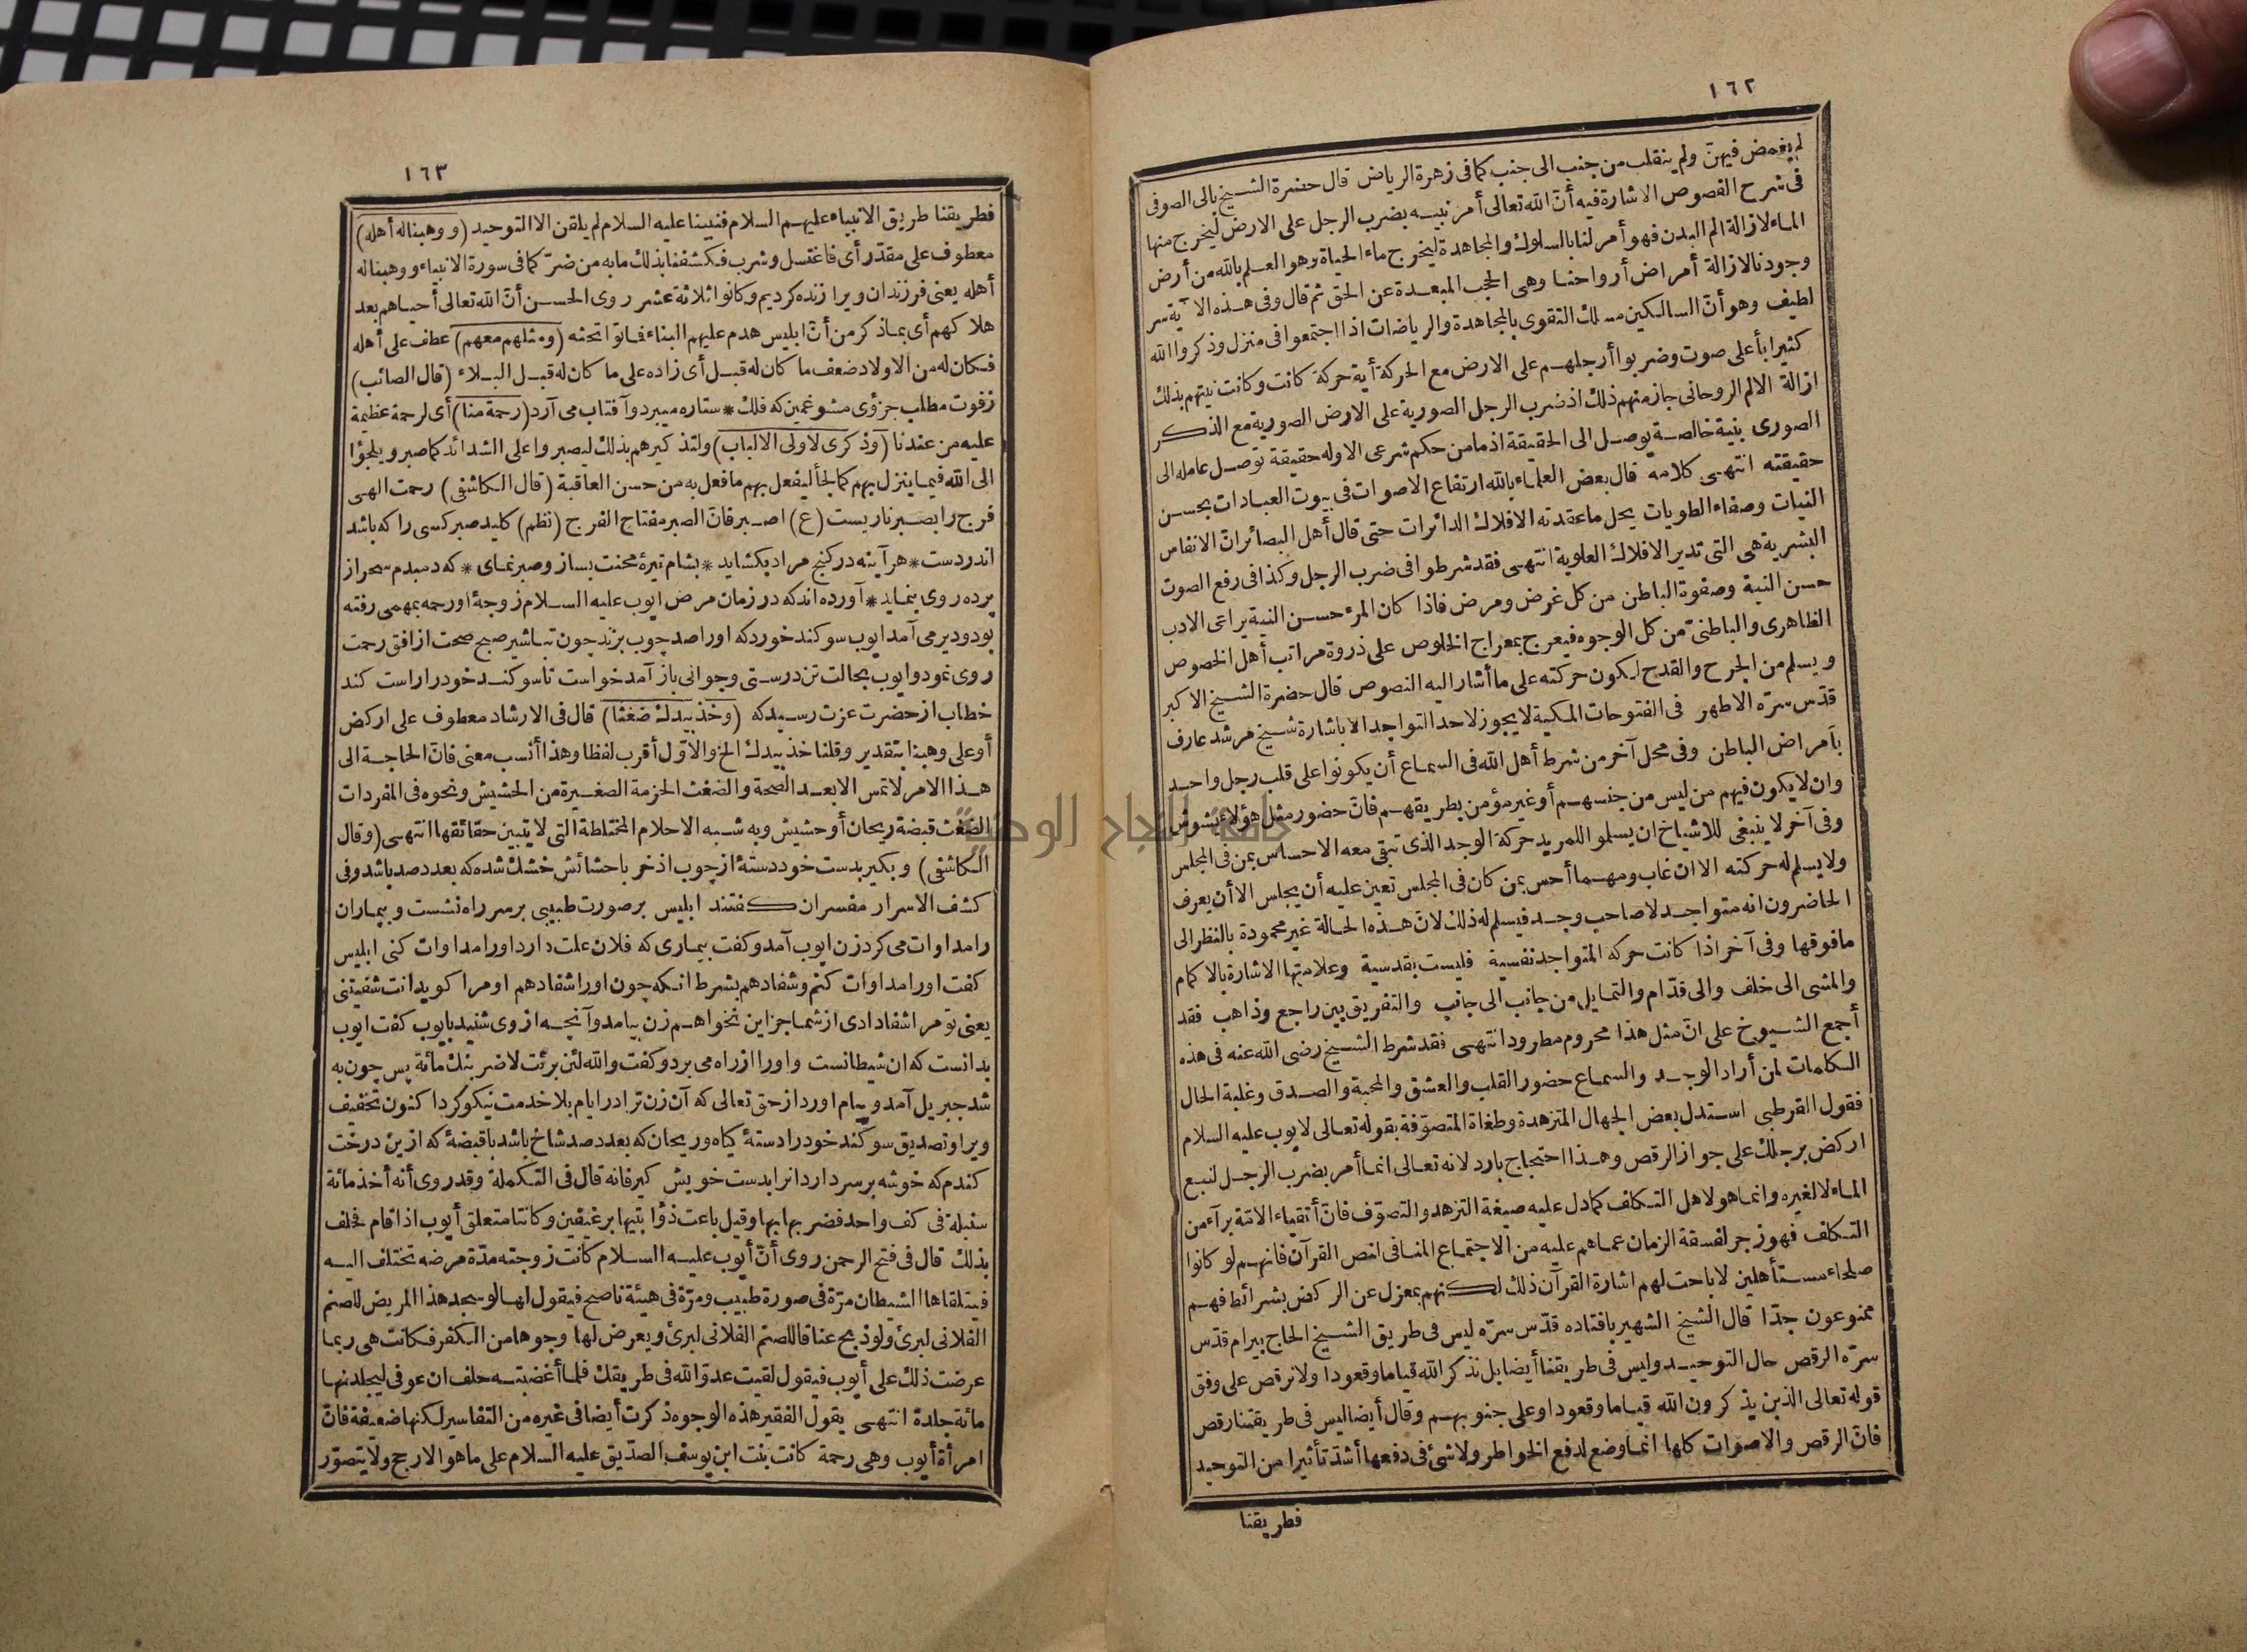 ١٦٢
لم يغمض فيهنّ ولم ينقلب من جنب الى جنب كما فى زهرة الرياض قال حضرة الشيخ بالى الصوفى
فى شرح الفصوص الاشارة فيه أنّ الله تعالى أمر نبيه بضرب الرجل على الارض ليخرج منها
الماء لازالة الم البدن فهو أمر لنا بالسلوك والمجاهدة ليخرج ماء الحياة وهو العلم بالله من أرض
وجودنا لازالة أمراض أرواحنا وهى الحجب المبعدة عن الحق ثم قال وفى هذه الآية سر
لطيف وهو أنّ السالكين مسلك التقوى بالمجاهدة والرياضات اذا اجتمعوا فى منزل وذكروا الله
كثيرا بأعلى صوت وضربوا أرجلهم على الارض مع الحركة أية حركة كانت وكانت نيتهم بذلك
ازالة الالم الروحانى جاز منهم ذلك اذ ضرب الرجل الصورية على الارض الصورية مع الذكر
الصورى بنية خالصة يوصل الى الحقيقة اذ ما من حكم شرعى الا وله حقيقة توصل عامله الى
حقيقته انتهى كلامه قال بعض العلماء بالله ارتفاع الاصوات فى بيوت العبادات بحسن
النيات وصفاء الطويات يحل ما عقدته الافلاك الدائرات حتى قال أهل البصائر انّ الانفاس
البشرية هى التى تدير الافلاك العلوية انتهى فقد شرطوا فى ضرب الرجل وكذا فى رفع الصوت
حسن النية وصفوة الباطن من كل غرض ومرض فاذا كان المرء حسن النية يراعى الادب
الظاهرى والباطنىّ من كل الوجوه فيعرج بمعراج الخلوص على ذروة مراتب أهل الخصوص
ويسلم من الجرح والقدح لكون حركته على ما أشار اليه النصوص قال حضرة الشيخ الاكبر
قدّس سرّه الاطهر فى الفتوحات المكية لا يجوز لاحد التواجد الا باشارة شيخ مرشد عارف
بأمراض الباطن وفى محل آخر من شرط أهل الله فى السماع أن يكونوا على قلب رجل واحد
وان لا يكون فيهم من ليس من جنسهم أو غير مؤمن بطريقهم فانّ حضور مثل هؤلاء يشوش
وفى آخر لا ينبغى للاشياخ ان يسلموا للمريد حركة الوجد الذى تبقى معه الاحساس بمن فى المجلس
ولا يسلم له حركته الا ان غاب ومهما أحس بمن كان فى المجلس تعين عليه أن يجلس الا أن يعرف
الحاضرون انه متواجد لا صاحب وجد فيسلم له ذلك لانّ هذه الحالة غير محمودة بالنظر الى
ما فوقها وفى آخر اذا كانت حركه المتواجد نفسية فليست بقدسية وعلامتها الاشارة بالاكمام
والمشى الى خلف والى قدّام والتمايل من جانب الى جانب والتفريق بين راجع وذاهب فقد
أجمع الشيوخ على انّ مثل هذا محروم مطرود انتهى فقد شرط الشيخ رضى الله عنه فى هذه
الكلمات لمن أراد الوجد والسماع حضور القلب والعشق والمحبة والصدق وغلبة الحال
فقول القرطبى استدل بعض الجهال المتزهدة وطغاة المتصوّفة بقوله تعالى لايوب عليه السلام
اركض برجلك على جواز الرقص وهذا احتجاج بارد لانه تعالى انما أمر بضرب الرجل لنبع
الماء لا لغيره وانما هو لاهل التكلف كما دل عليه صيغة التزهد والتصوّف فانّ أتقياء الامّة برآء من
التكلف فهو زجر لفسقة الزمان عما هم عليه من الاجتماع المنافى لنص القرآن فانهم لو كانوا
صلحاء مستأهلين لاباحت لهم اشارة القرآن ذلك لكنهم بمعزل عن الركض بشرائط فهم
ممنوعون جدّا قال الشيخ الشهير بافتاده قدّس سرّه ليس فى طريق الشيخ الحاج بيرام قدّس
سرّه الرقص حال التوحيد وليس فى طريقنا أيضا بل نذكر الله قياما وقعودا ولا نرقص على وفق
قوله تعالى الذين يذكرون الله قياما وقعودا وعلى جنوبهم وقال أيضا ليس فى طريقتنا رقص
فانّ الرقص والاصوات كلها انما وضع لدفع الخواطر ولا شئ فى دفعها أشدّ تأثيرا من التوحيد
فطريقنا
١٦٣
فطريقنا طريق الانبياء عليهم السلام فنبينا عليه السلام لم يلقن الا التوحيد (ووهبنا له أهله)
معطوف على مقدّر أى فاغتسل وشرب فكشفنا بذلك ما به من ضرّ كما فى سورة الانبياء ووهبنا له
أهله يعنى فرزندان ويرا زنده كرديم وكانوا ثلاثة عشر روى الحسن أنّ الله تعالى أحياهم بعد
هلاكهم أى بما ذكر من أنّ ابليس هدم عليهم البناء فماتوا تحته (ومثلهم معهم) عطف على أهله
فكان له من الاولاد ضعف ما كان له قبل أى زاده على ما كان له قبل البلاء (قال الصائب)
زفوت مطلب جزؤى مشو غمين كه فلك * ستاره ميبرد وآفتاب مى آرد (رحمة منا) أى لرحمة عظيمة
عليه من عندنا (وذكرى لاولى الالباب) ولتذكيرهم بذلك ليصبروا على الشدائد كما صبر ويلجؤا
الى الله فيما ينزل بهم كما لجأ ليفعل بهم ما فعل به من حسن العاقبة (قال الكاشفى) رحمت الهى
فرج را بصبر ناريست (ع) اصبر فانّ الصبر مفتاح الفرج (نظم) كليد صبر كسى را كه باشد
اندر دست * هر آينه در كنج مراد بكشايد * بشام تيرۀ محنت بساز وصبر نماى * كه دمبدم سحر از
پرده روى بنمايد * آورده اند كه در زمان مرض ايوب عليه السلام زوجۀ او رحمه بمهمى رفته
بود ودير مى آمد ايوب سوكند خورد كه او را صد چوب بزند چون تباشير صبح صحت از افق رحمت
روى نمود وايوب بحالت تن درستى وجوانى باز آمد خواست تا سوكند خود را راست كند
خطاب از حضرت عزت رسيد كه (وخذ بيدك ضغثا) قال فى الارشاد معطوف على اركض
أو على وهبنا بتقدير وقلنا خذ بيدك الخ والاوّل أقرب لفظا وهذا أنسب معنى فانّ الحاجة الى
هذا الامر لا تمس الا بعد الصحة والضغث الحزمة الصغيرة من الحشيش ونحوه فى المفردات
الضغث قبضة ريحان أو حشيش وبه شبه الاحلام المختلطة التى لا يتبين حقائقها انتهى (وقال
الكاشفى) وبكير بدست خود دستۀ از چوب اذخر يا حشائش خشك شده كه بعدد صد باشد وفى
كشف الاسرار مفسران كفتند ابليس بر صورت طبيبى بر سر راه نشست وبيماران
را مداوات مى كرد زن ايوب آمد وكفت بيمارى كه فلان علت دارد اورا مداوات كنى ابليس
كفت اورا مداوات كنم وشفا دهم بشرط انكه چون اورا شفا دهم او مرا كويد انت شفيتنى
يعنى تو مرا شفا دادى از شما جز اين نخواهم زن بيامد وآنچه از وى شنيد بايوب كفت ايوب
بدانست كه ان شيطانست واورا از راه مى برد وكفت والله لئن برئت لاضربنك مائة پس چون به
شد جبريل آمد وپيام اورد از حق تعالى كه آن زن ترا در ايام بلا خدمت نيكو كرد اكنون تخفيف
ويرا وتصديق سوكند خود را دستۀ كياه وريحان كه بعدد صد شاخ باشد يا قبضۀ كه ازين درخت
كندم كه خوشه بر سر دارد انرا بدست خويش كير فانه قال فى التكملة وقد روى أنه أخذ مائة
سنبلة فى كف واحد فضربها بها وقيل باعت ذؤابتيها برغيفين وكانتا متعلق أيوب اذا قام فحلف
بذلك قال فى فتح الرحمن روى أنّ أيوب عليه السلام كانت زوجته مدّة مرضه تختلف اليه
فيتلقاها الشيطان مرّة فى صورة طبيب ومرّة فى هيئة ناصح فيقول لها لو سجد هذا المريض للصنم
الفلانى لبرئ ولو ذبح عناقا للصنم الفلانى لبرئ ويعرض لها وجوها من الكفر فكانت هى ربما
عرضت ذلك على أيوب فيقول لقيت عدوّ الله فى طريقك فلما أغضبته حلف ان عوفى ليجلدنها
مائة جلدة انتهى يقول الفقير هذه الوجوه ذكرت أيضا فى غيره من التفاسير لكنها ضعيفة فانّ
امرأة أيوب وهى رحمة كانت بنت ابن يوسف الصدّيق عليه السلام على ما هو الارجح ولا يتصوّر
جامعة النجاح الوطنية